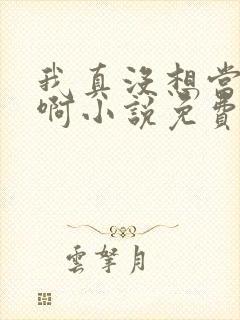 我真沒想當
啊小說免費
雲拏月